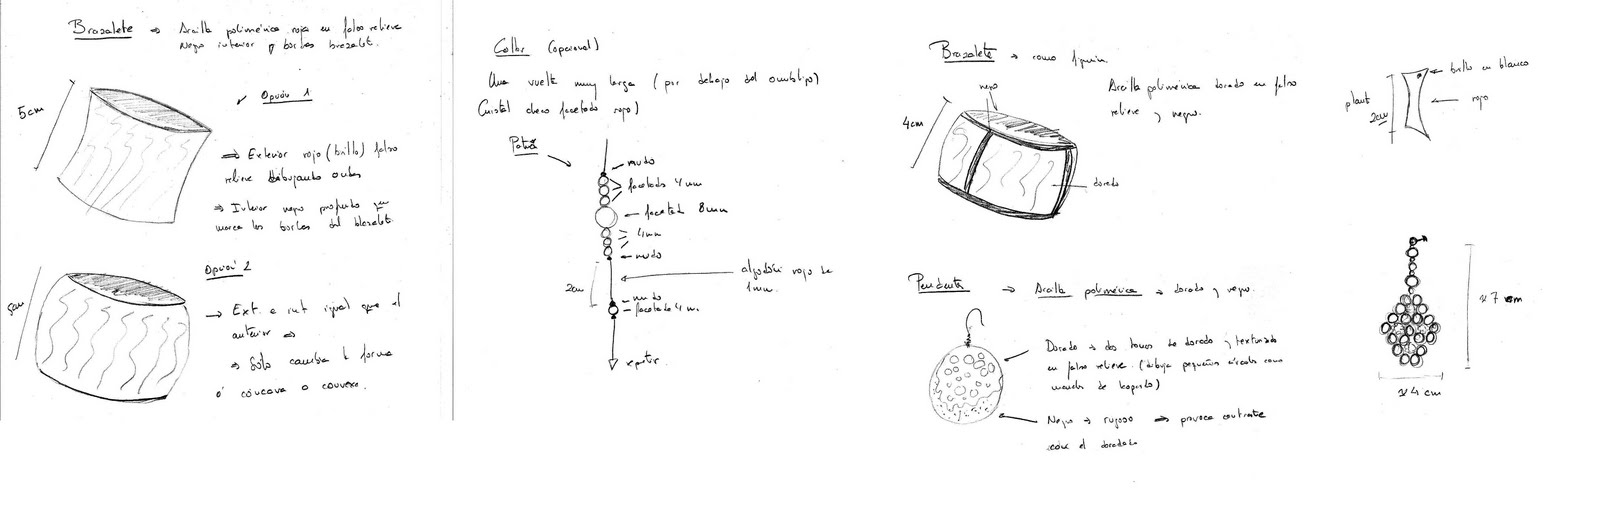 Brazalete → Arcilla polimérica roja en falso relieve
Negro interior y bordes brazalet.
5cm
✓ Opción 1
⇒ Exterior rojo (brillo) falso
relieve dibujando ondas
⇒ Interior negro profundo que
marca los bordes del brazalet.
5cm
Opción 2
→ Ext. e int igual que el
anterior ⇒
⇒ Sólo cambia la forma
ó cóncava o convexa.
Collar (opcional)
Una vuelta muy larga (por debajo del ombligo)
Cristal checo facetado rojo)
Patrón
nudo
facetado 4 mm
facetado 8mm
4mm
nudo
2cm
algodón rojo de
1mm.
nudo
facetado 4 m.
repetir
Brazalete → como figurín
Arcilla polimérica dorado en falso
relieve y negro.
negro
4cm
dorado
Pendientes → Arcilla polimérica → dorado y negro.
Dorado → dos tonos de dorado y texturizado
en falso relieve. (dibuja pequeños círculos como
mancha de leopardo)
Negro → rugoso ⇒ provoca contraste
con el dorado
brillo en blanco
plaut
2cm
rojo
≈ 7 cm
≈ 4 cm